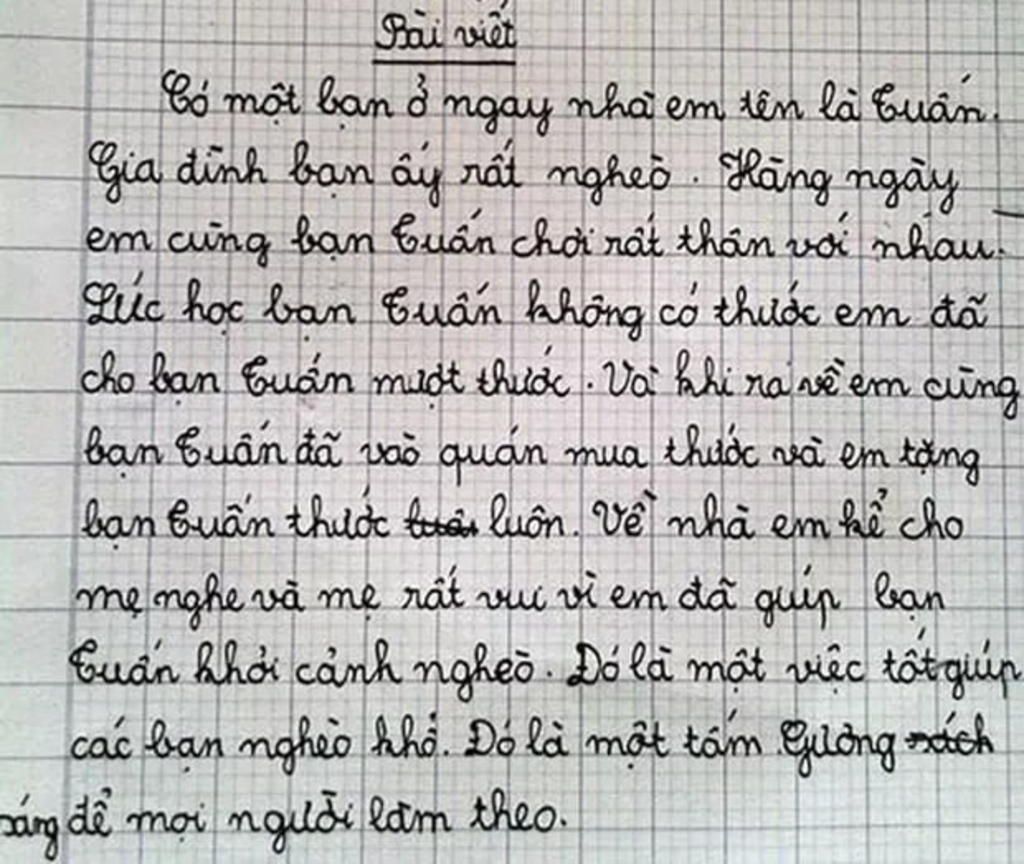 Bài viết
Có một bạn ở ngay nhà em tên là Tuấn.
Gia đình bạn ấy rất nghèo. Hàng ngày
em cùng bạn Tuấn chơi rất thân với nhau.
Lúc học bạn Tuấn không có thước em đã
cho bạn Tuấn mượt thước. Và khi ra về em cùng
bạn Tuấn đã vào quán mua thước và em tặng
bạn Tuấn thước luôn. Về nhà em kể cho
mẹ nghe và mẹ rất vui vì em đã giúp bạn
Tuấn khỏi cảnh nghèo. Đó là một việc tốt giúp
các bạn nghèo khổ. Đó là một tấm Gương sách
sáng để mọi người làm theo.